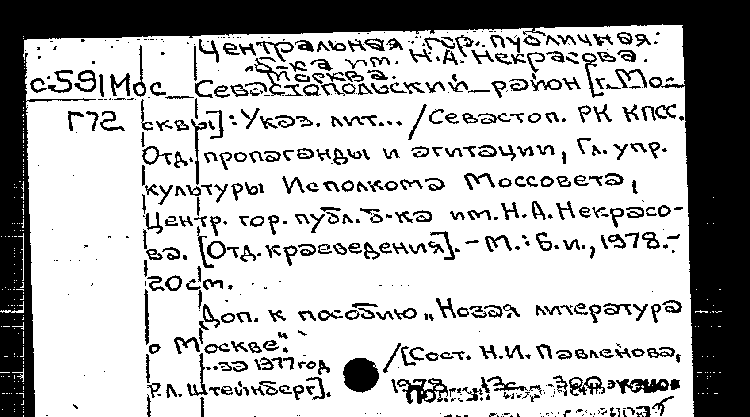 Центральная гор. публичная
б-ка им. Н.А. Некрасова.
Москва.
с591Мос Севастопольский район [г. Мос
Г72 сквы]: Указ. лит... / Севастоп. РК КПСС.
Отд. пропаганды и агитации, Гл. упр.
культуры Исполкома Моссовета,
Центр. гор. публ. б-ка им. Н.А. Некрасо-
ва. [Отд. краеведения]. – М.: Б.и., 1978.–
20см.
Доп. к пособию „Новая литература
о Москве".
...за 1977год / [Сост. Н.И. Павленова,
Р.Л. Штейнберг]. 1978. 13с. 300